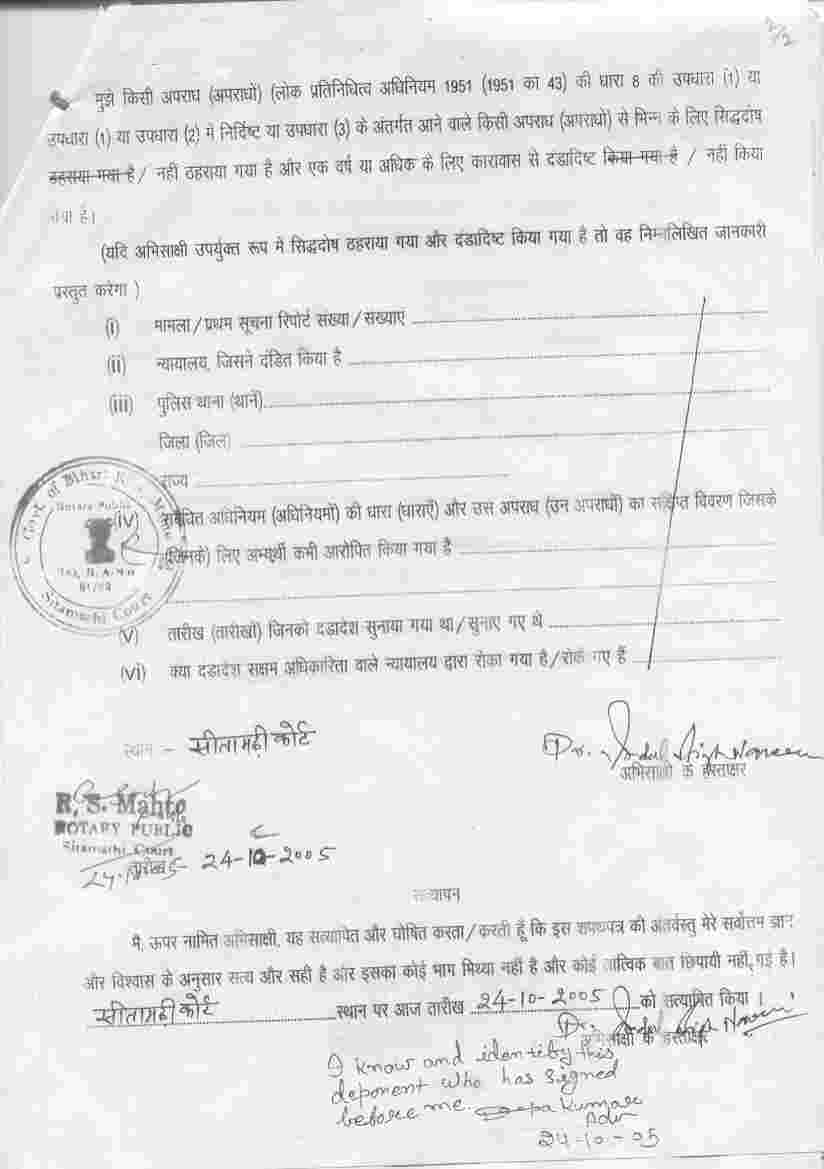 2/2
मुझे किसी अपराध (अपराधों) (लोक प्रतिनिधित्व अधिनियम 1951 (1951 का 43) की धारा 8 की उपधारा (1) या
उपधारा (1) या उपधारा (2) में निर्दिष्ट या उपधारा (3) के अंतर्गत आने वाले किसी अपराध (अपराधों) से भिन्न के लिए सिद्धदोष
ठहराया गया है / नहीं ठहराया गया है और एक वर्ष या अधिक के लिए कारावास से दंडादिष्ट किया गया है / नहीं किया
गया है।
(यदि अभिसाक्षी उपर्युक्त रूप में सिद्धदोष ठहराया गया और दंडादिष्ट किया गया है तो वह निम्नलिखित जानकारी
प्रस्तुत करेगा )
(i) मामला/प्रथम सूचना रिपोर्ट संख्या/संख्याएं
(ii) न्यायालय, जिसने दंडित किया है
(iii) पुलिस थाना (थानें)
जिला (जिले)
राज्य
(iv) संबंधित अधिनियम (अधिनियमों) की धारा (धाराएँ) और उस अपराध (उन अपराधों) का संक्षिप्त विवरण जिसके
(जिनके) लिए अभ्यर्थी कभी आरोपित किया गया है
Govt. of Bihar
Notary Public
Sitamarhi Court
(v) तारीख (तारीखों) जिनको दंडादेश सुनाया गया था/सुनाए गए थे
(vi) क्या दंडादेश सक्षम अधिकारिता वाले न्यायालय द्वारा रोका गया है/रोके गए हैं
स्थान - सीतामढ़ी कोर्ट
Dr.
अभिसाक्षी के हस्ताक्षर
R. S. Mahto
NOTARY PUBLIC
Sitamarhi Court
तारीख 24-10-2005
सत्यापन
मैं, ऊपर नामित अभिसाक्षी, यह सत्यापित और घोषित करता/करती हूँ कि इस शपथपत्र की अंतर्वस्तु मेरे सर्वोत्तम ज्ञान
और विश्वास के अनुसार सत्य और सही है और इसका कोई भाग मिथ्या नहीं है और कोई तात्विक बात छिपायी नहीं गई है।
सीतामढ़ी कोर्ट स्थान पर आज तारीख 24-10-2005 को सत्यापित किया ।
Dr.
अभिसाक्षी के हस्ताक्षर
I know and identify this
deponent who has signed
before me. Deepa Kumar
Adv
24-10-05